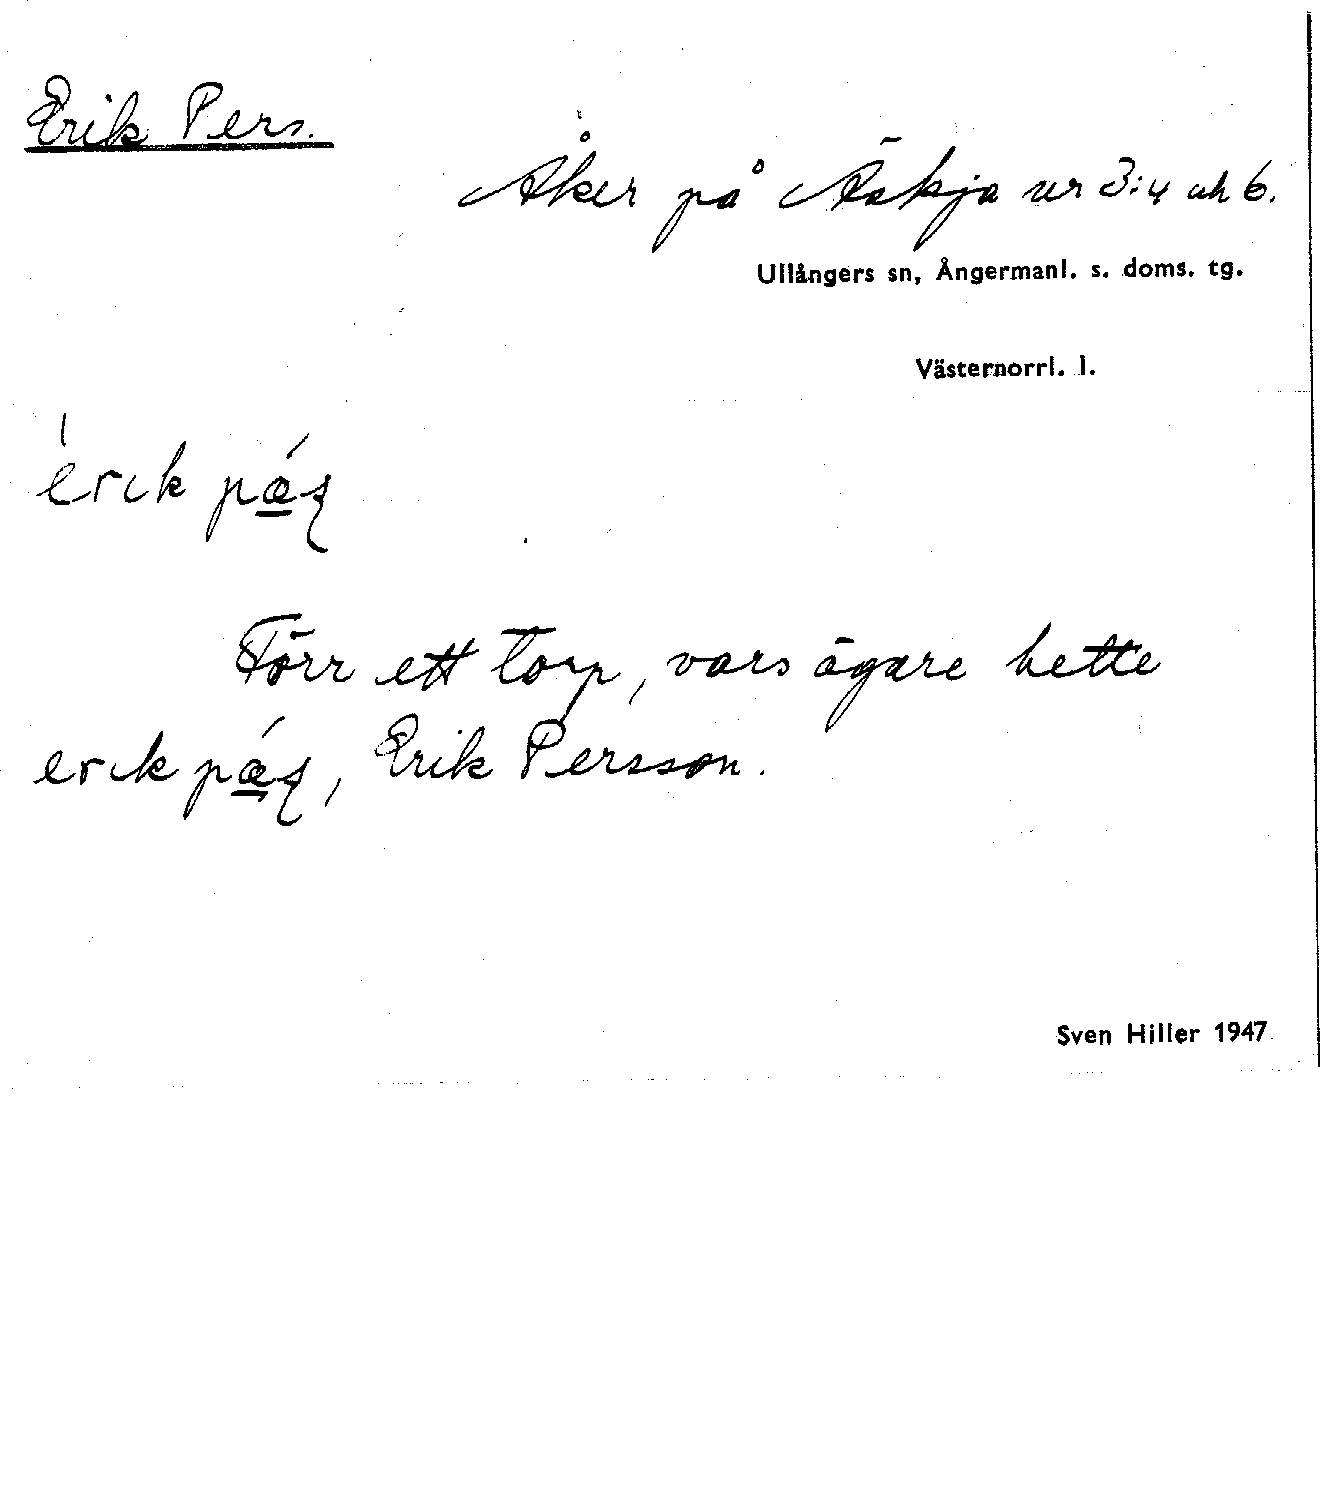 Erik Pers.
Åker på Äskja nr 3:4 och 6.
Ullångers sn, Ångermanl. s. doms. tg.
Västernorrl. l.
erik
Förr ett torp, vars ägare hette
erik , Erik Persson.
Sven Hiller 1947